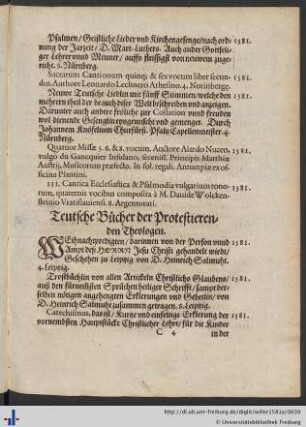 Psalmen / Geistliche Lieder vnd Kirchengesenge / nach ord= 1581.
nung der Jarzeit / D. Mart. Luthers. Auch ander Gottseli=
ger Lehrer vnnd Menner / auffs fleissigst von newem zuge=
richt. 8. Nürnberg.
Sacrarum Cantionum quinq; & sex vocum liber secun- 1581.
dus. Authore Leonardo Lechnero Athesino. 4. Norinbergę.
Neuwe Teutsche Liedlin mit fünff Stimmen / welche den 1581.
mehrern theil der brauch dieser Welt beschreiben vnd anzeigen.
Darunter auch andere fröliche zur Collation vnnd freuden
wol dienende Gesengle eyngemischt vnd gemenget. Durch
Johannem Knöfelium Churfürst. Pfaltz Capellenmeister 4.
Nürnberg.
Quatuor Missæ 5. 6. & 8. vocum. Auctore Alardo Nuceo, 1581.
vulgo du Gaucquier Insulano, sereniss. Principis Matthiæ
Austrij, Musicorum præfecto. In fol. regali. Antuerpiæ ex of-
ficina Plantini.
III. Cantica Ecclesiastica & Psalmodia vulgarium tono- 1581.
rum, quatuor vocibus composita à M. Dauide Wolcken-
steinio Vratislauiensi. 8. Argentorati.
Teutsche Bücher der Protestieren=
den Theologen.
WEyhnachtpredigten / darinnen von der Person vnnd 1581.
Ampt deß HERRN Jesu Christi gehandelt wirdt /
Geschehen zu Leipzig von D. Heinrich Salmuht.
4. Leipzig.
Trostbüchlin von allen Artickeln Christliches Glaubens / 1581.
auß den fürnemsten Sprüchen heiliger Schrifft / sampt der=
selben nötigen angehengten Erklerungen vnd Gebetlin / von
D. Heinrich Salmuht zusammen getragen. 8. Leipzig.
Catechismus, das ist / Kurtze vnd einfeltige Erklerung der 1581.
vornembsten Hauptstücke Christlicher Lehre / für die Kinder
C 4 in der
http://dl.ub.uni-freiburg.de/diglit/willer1581a/0030
© Universitätsbibliothek Freiburg